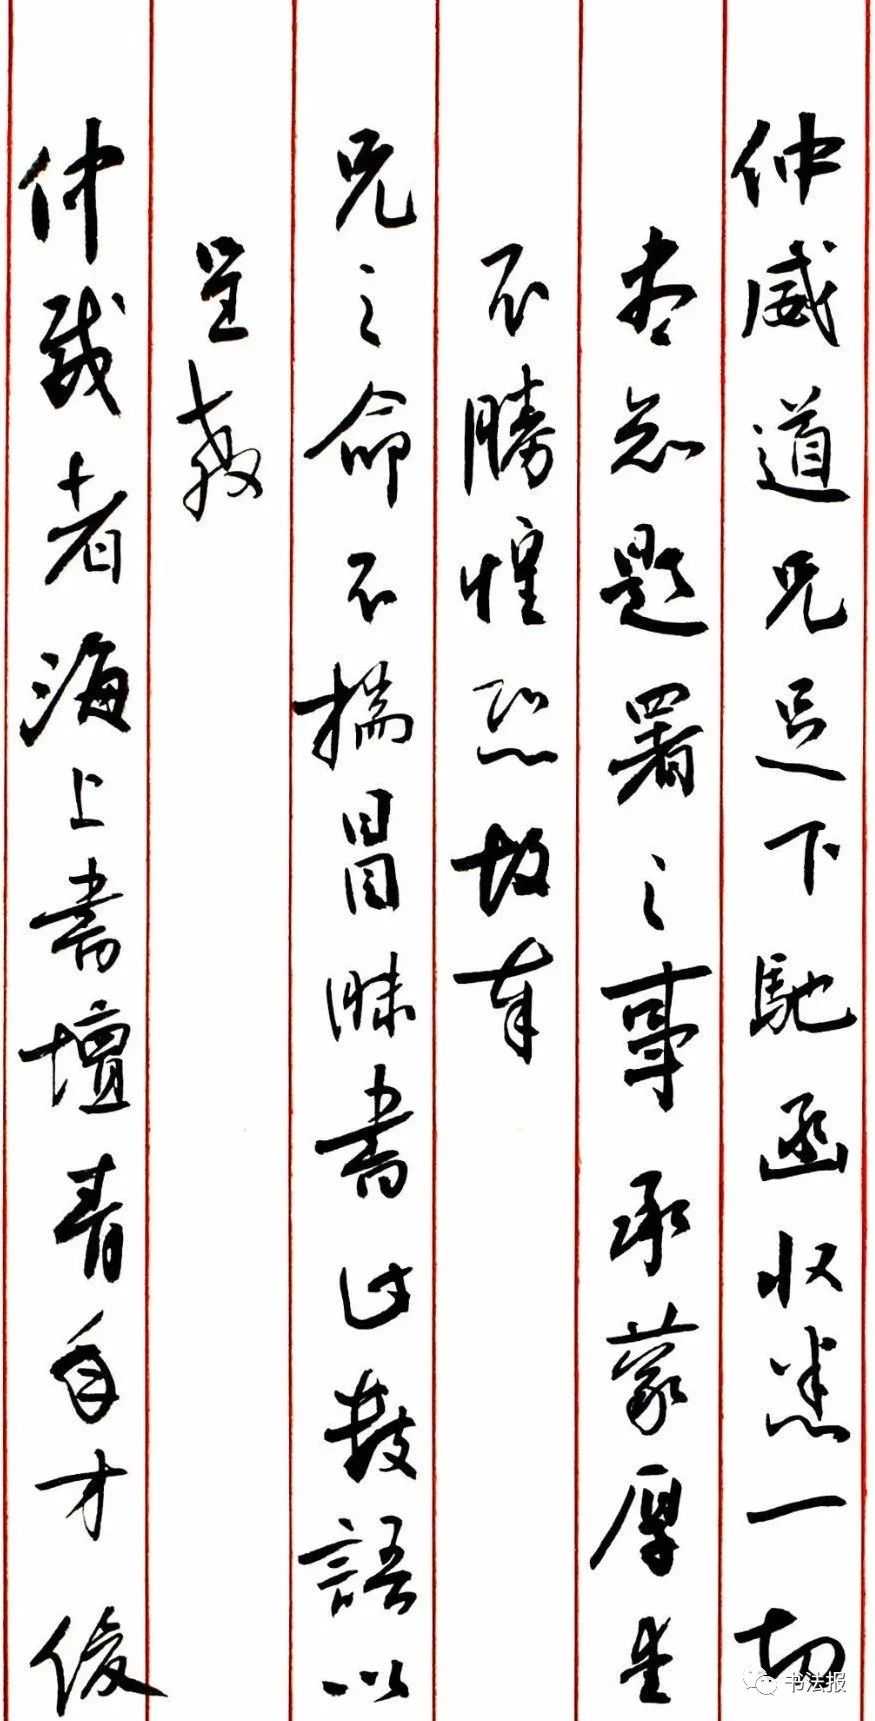 仲威道兄足下馳函收悉一切
題署之事承蒙厚
不勝惶恐故奉
兄之命不揣冒昧書此數語以
呈教
仲威者海上書壇青年才俊
书法报